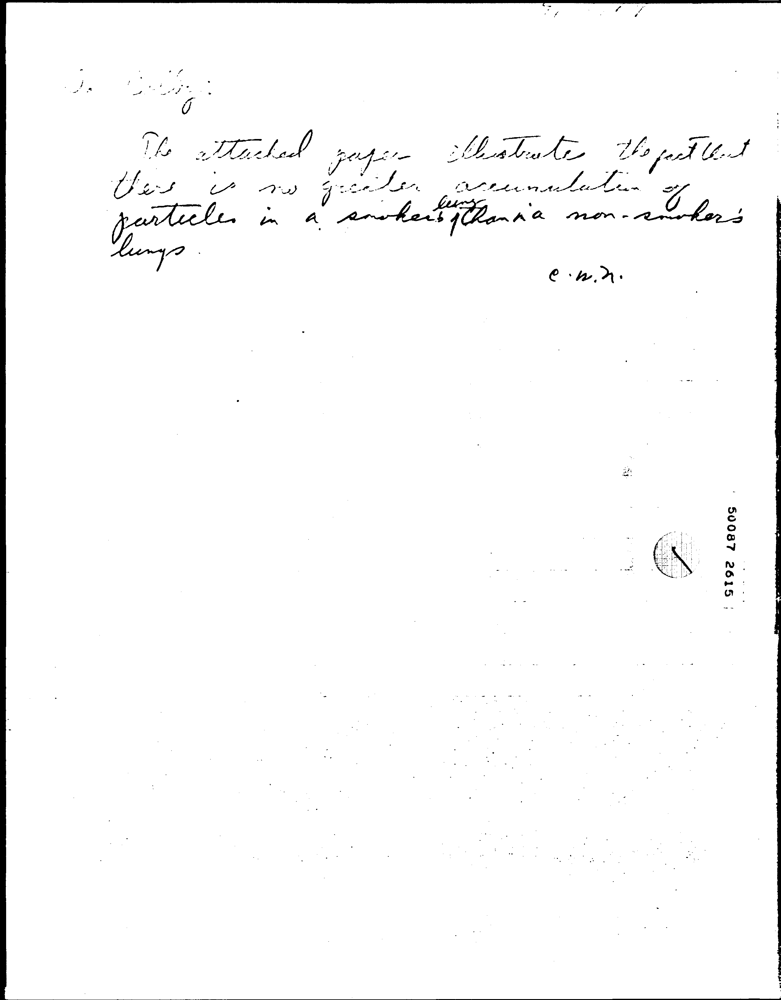 The attached paper illustrates the fact that
there is no greater accumulation of
particles in a smoker's lungs than in a non-smoker's
lungs.
e.w.n.
50087 2615